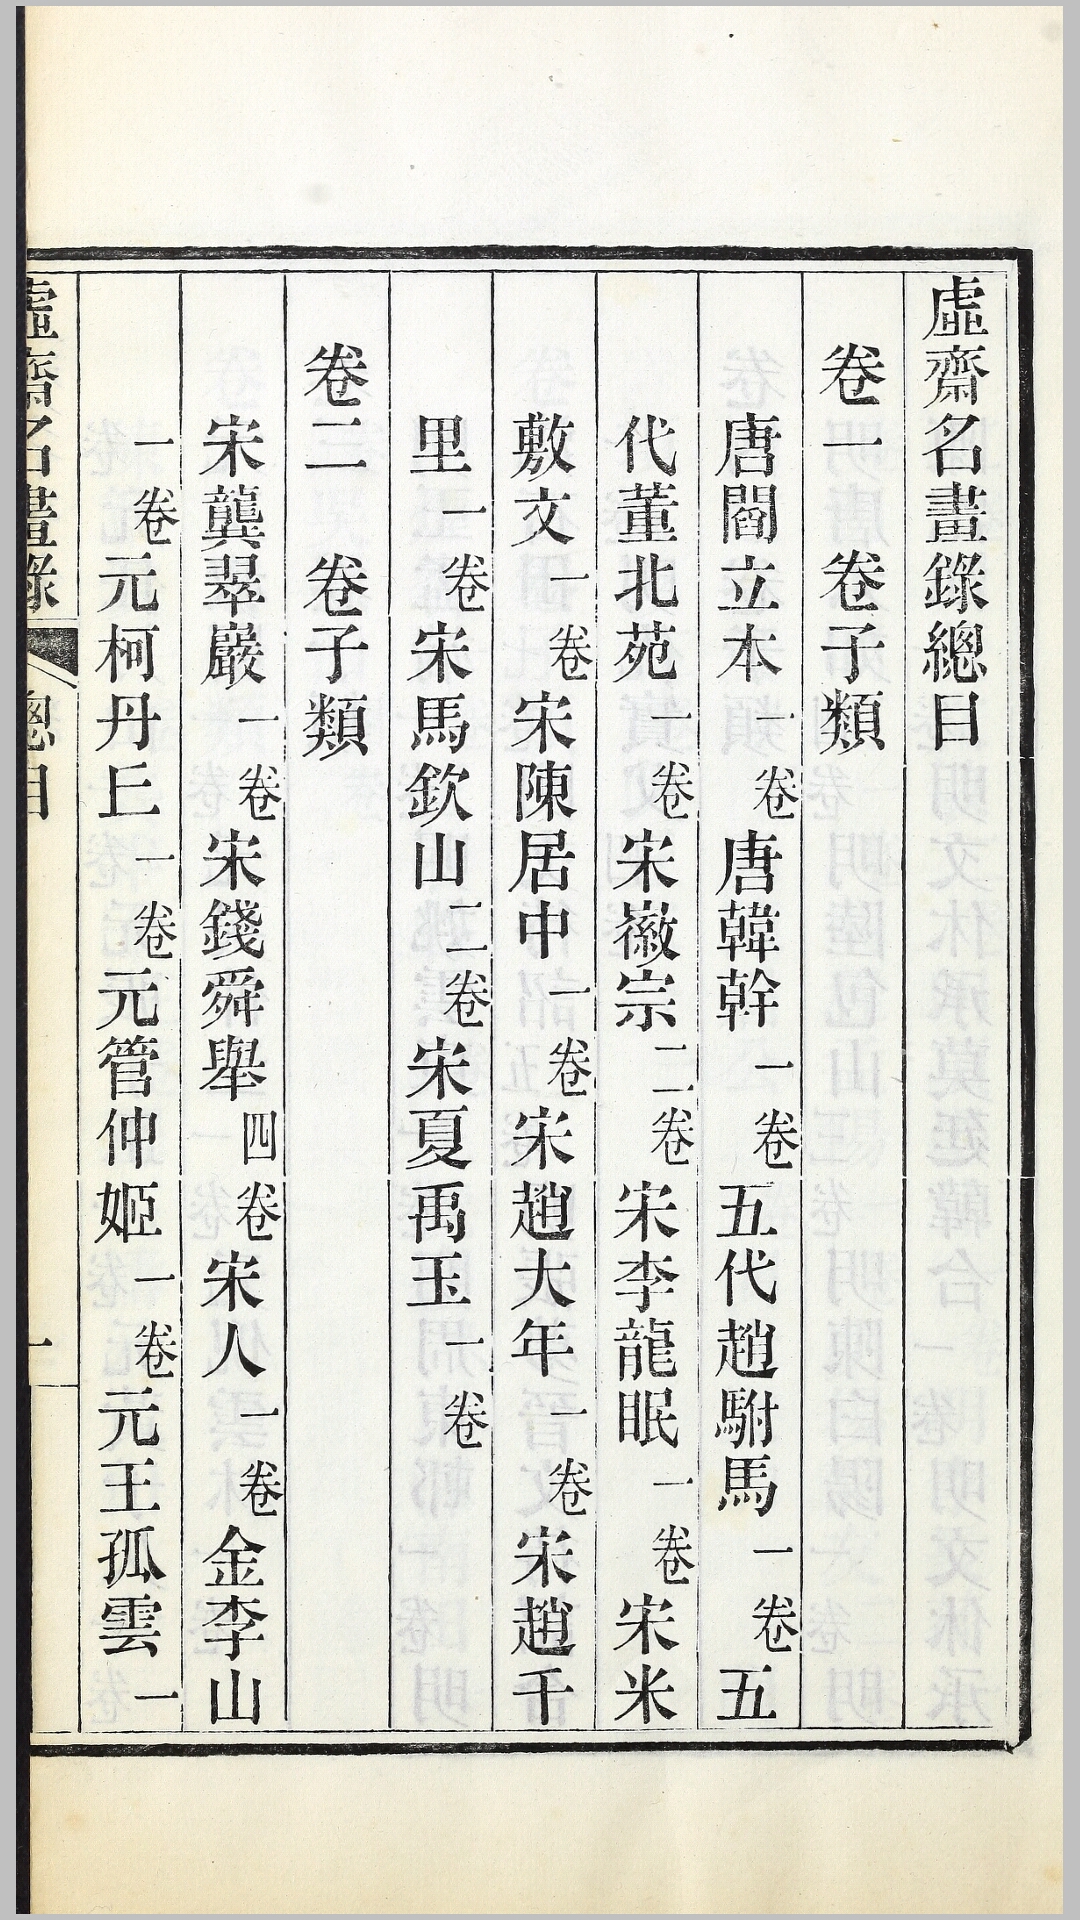 虛齋名畫錄總目
卷一　卷子類
唐閻立本一卷唐韓幹一卷五代趙駙馬一卷五
代董北苑一卷宋徽宗二卷宋李龍眠一卷宋米
敷文一卷宋陳居中一卷宋趙大年一卷宋趙千
里一卷宋馬欽山二卷宋夏禹玉一卷
卷二　卷子類
宋龔翠巖一卷宋錢舜舉四卷宋人一卷金李山
一卷元柯丹丘一卷元管仲姬一卷元王孤雲一
虛齋名畫錄　總目　一